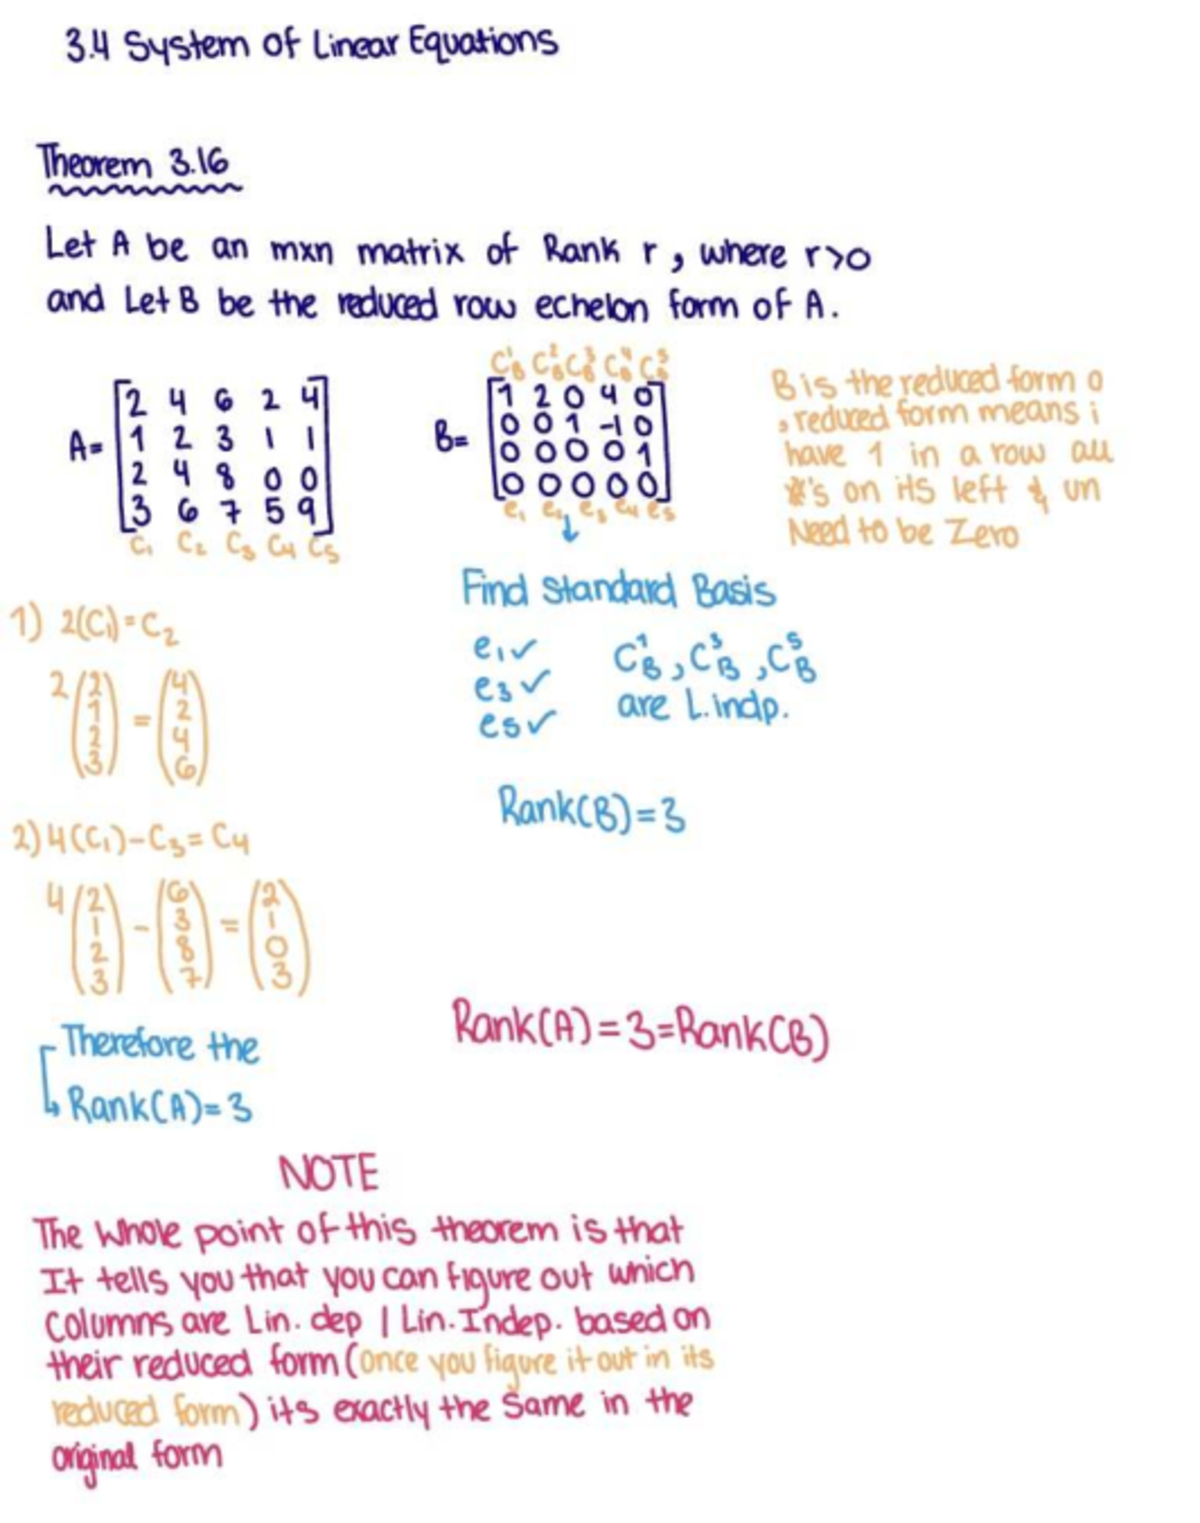 3.4 System of Linear Equations
Theorem 3.16
Let A be an mxn matrix of Rank r, where r>0
and Let B be the reduced row echelon form of A.
A= [2 4 6 2 4
1 2 3 1 1
2 4 8 0 0
3 6 7 5 9]
C₁ C₂ C₃ C₄ C₅
C¹B C²B C³B C⁴B C⁵B
B= [1 2 0 4 0
0 0 1 -1 0
0 0 0 0 1
0 0 0 0 0]
e₁ e₂ e₃ e₄ e₅
↓
B is the reduced form o
, reduced form means i
have 1 in a row all
#'s on its left & un
Need to be Zero
1) 2(C₁)=C₂
2 (2 1 2 3) = (4 2 4 6)
2) 4(C₁)-C₃=C₄
4 (2 1 2 3) - (6 3 8 7) = (2 1 0 3)
Therefore the
Rank(A)=3
Find Standard Basis
e₁✓
e₃✓
e5✓
C¹B, C³B, C⁵B
are L.indp.
Rank(B)=3
Rank(A)=3=Rank(B)
NOTE
The Whole point of this theorem is that
It tells you that you can figure out which
Columns are Lin. dep | Lin. Indep. based on
their reduced form (once you figure it out in its
reduced form) its exactly the Same in the
original form